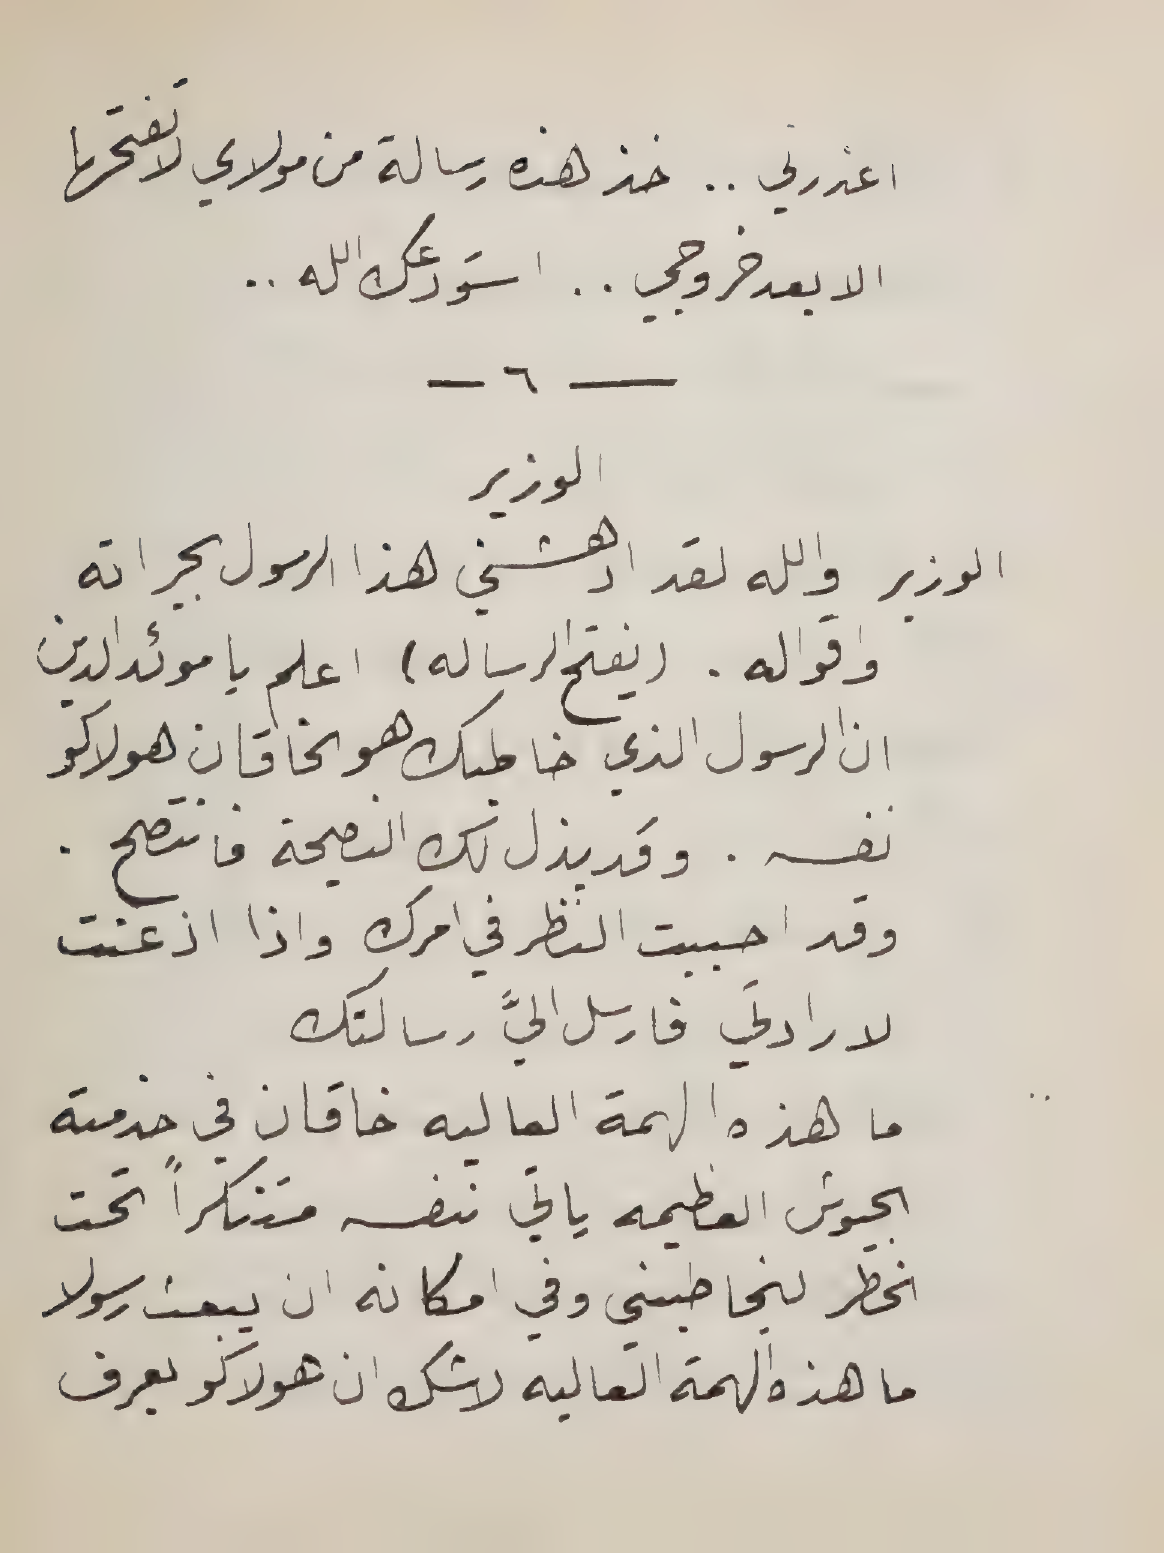 اعذرني .. خذ هذه رسالة من مولاي لا تفتحها
الا بعد خروجي .. استودعك الله ..
— ٦ —
الوزير
الوزير والله لقد ادهشني هذا الرسول بجراته
واقواله . (يفتح الرساله) اعلم يا موئد الدين
ان الرسول الذي خاطبك هو الخاقان هولاكو
نفسه . وقد بذل لك النصيحة فانتصح .
وقد احببت النظر في امرك واذا اذعنت
لارادتي فارسل اليَّ رسالتك
ما هذه الهمة العاليه خاقان في خدمته
الجيوش العظيمه ياتي بنفسه متنكراً تحت
الخطر ليخاطبني وفي امكانه ان يبعث رسولا
ما هذه الهمة العاليه لاشك ان هولاكو يعرف